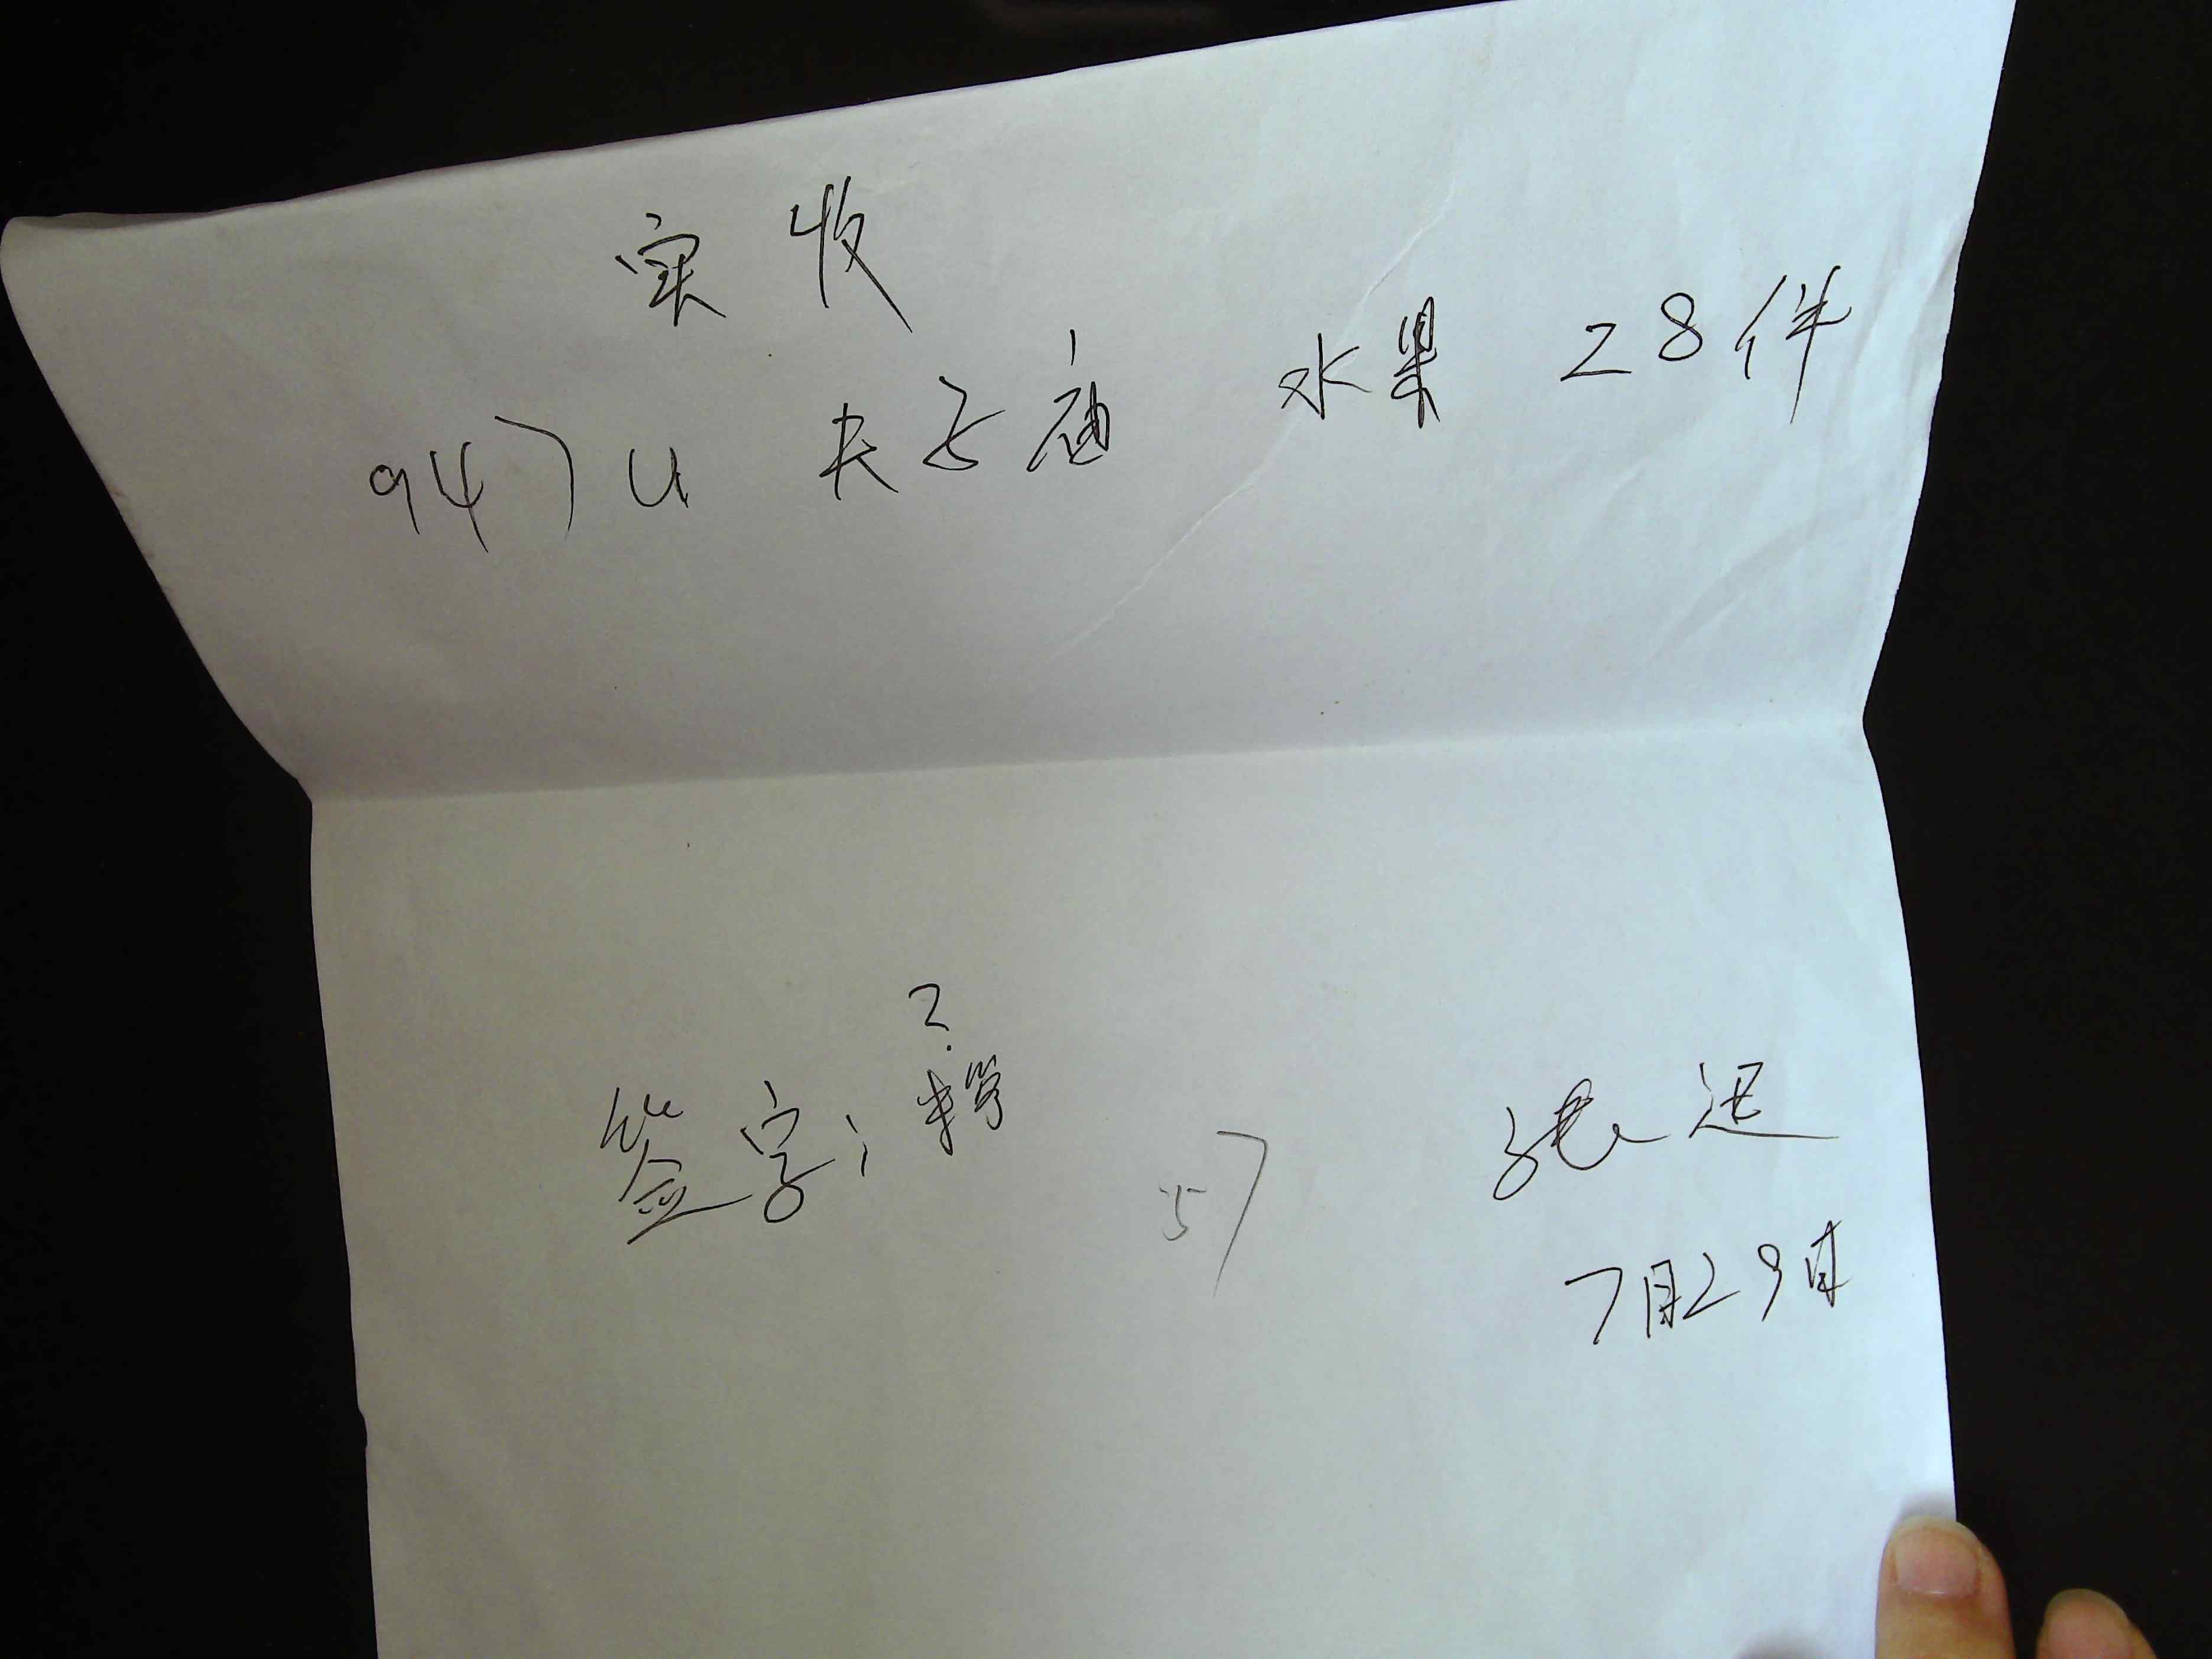 实收
947U 夫子庙 水果 28件
?
签字:
57
张迅
7月29日